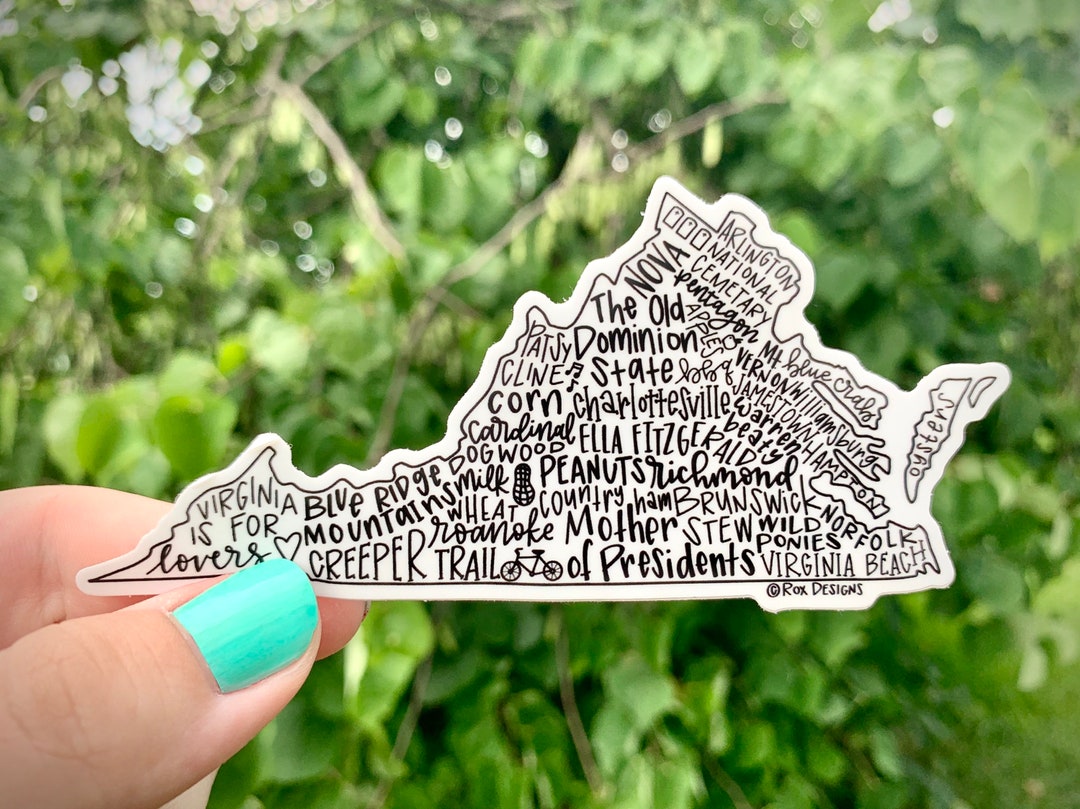 NOVA
ARINGTON
NATIONAL
CEMETARY
Pentagon
The Old
Dominion
State
PATSY
CLINE
APPLES
blog
Mt.
VERNON
blue crabs
Williamsburg
JAMESTOWN
corn
Charlottesville
warren
beatty
HAMPTON
oysters
cardinal
ELLA FITZGERALD
DOGWOOD
milk
PEANUTS
richmond
VIRGINIA
IS FOR
lovers
BLUE RIDGE
MOUNTAINS
WHEAT
country ham
BRUNSWICK
STEW
roanoke
Mother
of Presidents
WILD
PONIES
NORFOLK
CREEPER TRAIL
VIRGINIA BEACH
© ROX DESIGNS